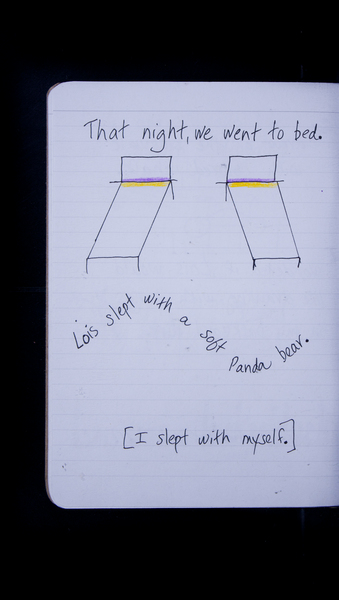 That night, we went to bed.
Lois slept with a soft Panda bear.
[I slept with myself.]